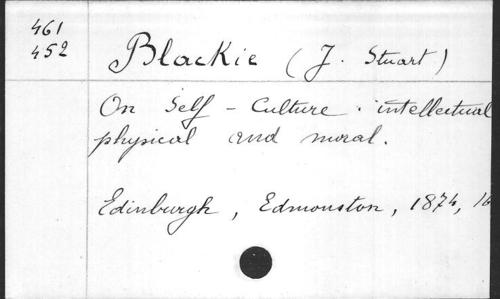 461
452
Blackie (J. Stuart)
On Self - Culture. intellectual
physical and moral.
Edinburgh, Edmonston, 1874, 16